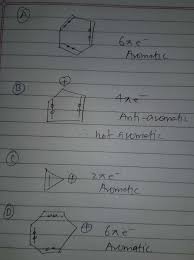 A
6π e⁻
Aromatic
B
+
4π e⁻
Anti-aromatic
∴ not aromatic
C
+
2π e⁻
Aromatic
D
+
6π e⁻
Aromatic